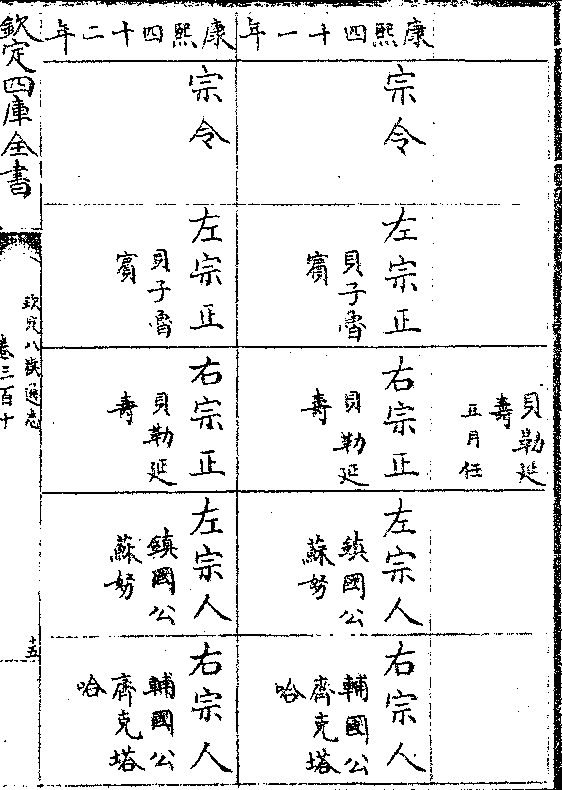 貝勒延
壽
五月任
康熙四十一年
宗令
左宗正
貝子魯
賓
右宗正
貝勒延
壽
左宗人
鎮國公
蘇努
右宗人
輔國公
齊克塔
哈
康熙四十二年
宗令
左宗正
貝子魯
賓
右宗正
貝勒延
壽
左宗人
鎮國公
蘇努
右宗人
輔國公
齊克塔
哈
欽定四庫全書
欽定八旗通志
卷三百十
十五